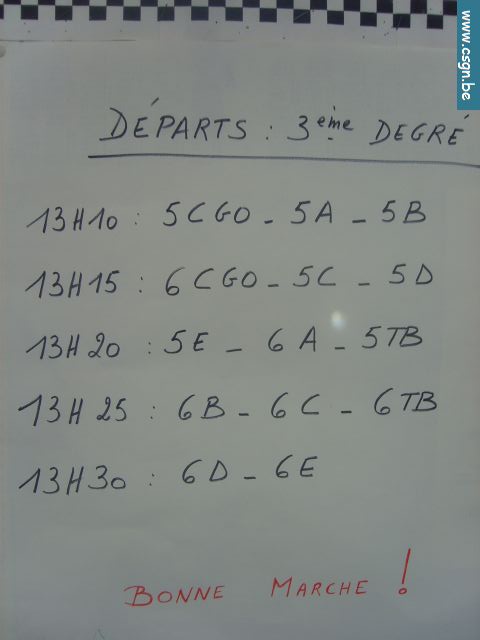 www.csgn.be
DÉPARTS : 3ème DEGRÉ
13H10 : 5CGO - 5A - 5B
13H15 : 6CGO - 5C - 5D
13H20 : 5E - 6A - 5TB
13H25 : 6B - 6C - 6TB
13H30 : 6D - 6E
BONNE MARCHE !